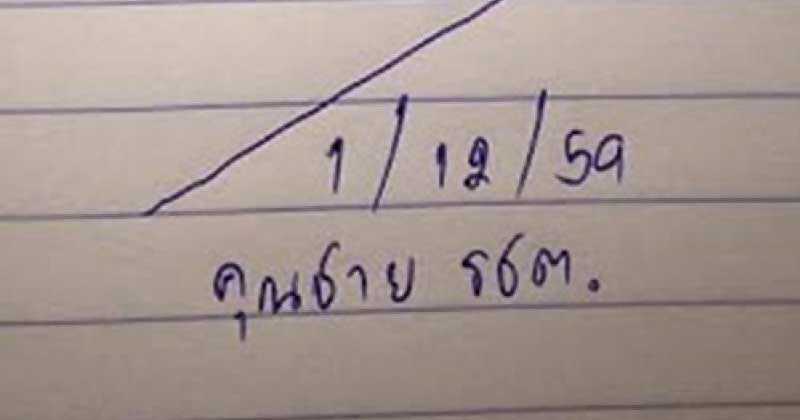 1/12/59
คุณชาย รชต.